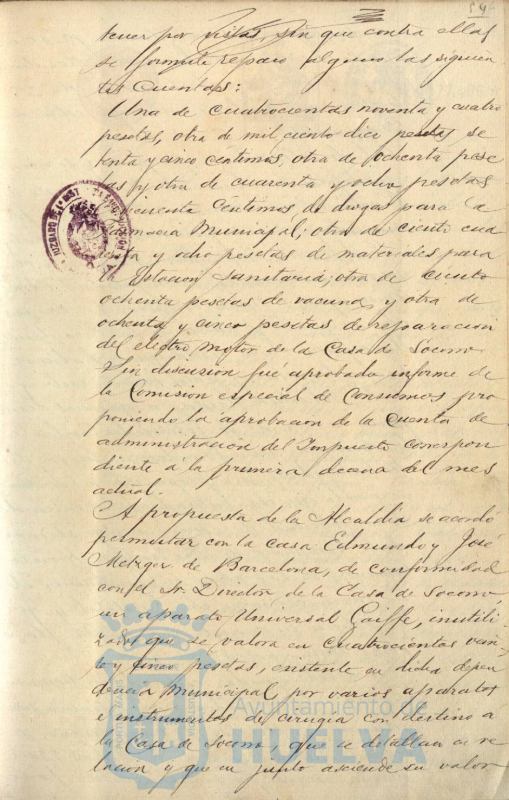 tener por vistas, sin que contra ellas
se formule reparo alguno las siguien
tes cuentas:
Una de cuatrocientas noventa y cuatro
pesetas, otra de mil ciento diez pesetas se
tenta y cinco centimos, otra de ochenta pese
tas y otra de cuarenta y ocho pesetas
cincuenta centimos de drogas para la
Farmacia Municipal; otra de ciento cua
renta y ocho pesetas de materiales para
la Estacion Sanitaria; otra de ciento
ochenta pesetas de vacuna, y otra de
ochenta y cinco pesetas de reparacion
del electro motor de la Casa de Socorro.
Sin discusion fué aprobado informe de
la Comision especial de Consumos pro
poniendo la aprobacion de la cuenta de
administracion del Impuesto correspon
diente á la primera decena del mes
actual.
A propuesta de la Alcaldia se acordó
permutar con la casa Edmundo y José
Metzger de Barcelona, de conformidad
con el Sr. Director de la Casa de Socorro
un aparato Universal Gaiffe, inutili
zado que se valora en cuatrocientas vein
te y cinco pesetas, existente en dicha depen
dencia Municipal, por varios aparatos
é instrumentos de cirugia con destino á
la Casa de Socorro, que se detallan en re
lacion y que en junto asciende su valor
JUZGADO DE 1ª INST
Ayuntamiento de
HUELVA